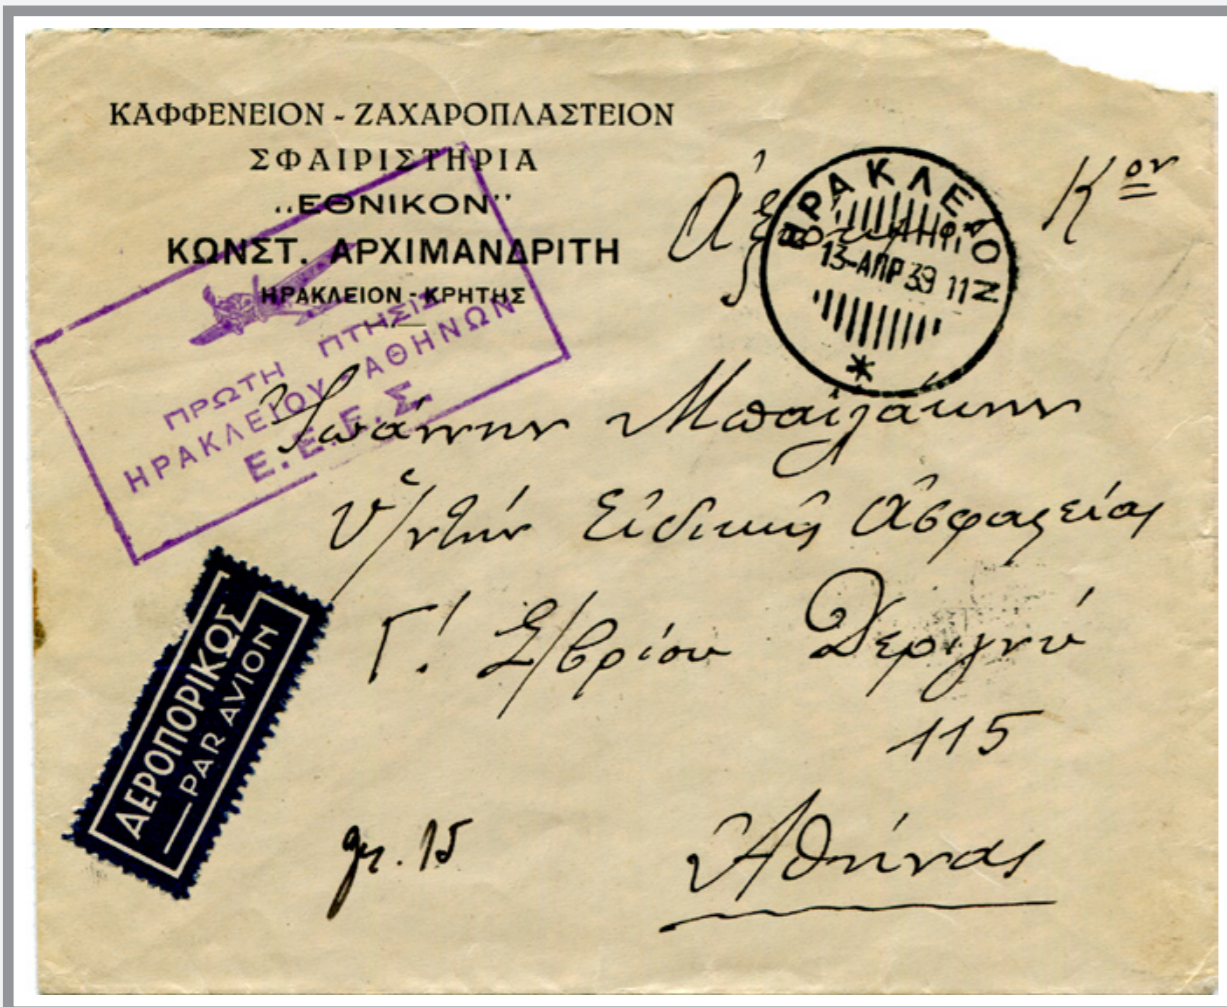 ΚΑΦΦΕΝΕΙΟΝ - ΖΑΧΑΡΟΠΛΑΣΤΕΙΟΝ
ΣΦΑΙΡΙΣΤΗΡΙΑ
„ΕΘΝΙΚΟΝ"
ΚΩΝΣΤ. ΑΡΧΙΜΑΝΔΡΙΤΗ
ΗΡΑΚΛΕΙΟΝ - ΚΡΗΤΗΣ
ΠΡΩΤΗ ΠΤΗΣΙΣ
ΗΡΑΚΛΕΙΟΥ - ΑΘΗΝΩΝ
Ε.Ε.Ε.Σ.
ΗΡΑΚΛΕΙΟΝ
13-ΑΠΡ 39 11
Κον
Ἰωάννην Μπαϊλάκην
Ὑ/ντὴν Εἰδικῆς Ἀσφαλείας
Γ! Σ/βρίου Δεριγνύ
115
Ἀθήνας
γρ. 15
ΑΕΡΟΠΟΡΙΚΩΣ
PAR AVION